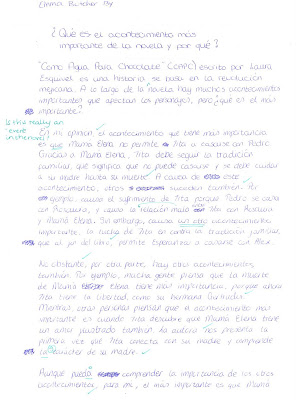 Emma Butcher
¿Qué es el acontecimiento más
importante de la novela y por qué?
"Como Agua Para Chocolate" (CAPC) escrito por Laura
Esquivel es una historia se pasa en la revolución
mejicana. A lo largo de la novela hay muchos acontecimientos
importantes que afectan los personajes, pero ¿qué es el más
importante?
Is this really an
'event'
En mi opinión, el acontecimiento que tiene más importancia
es que Mamá Elena no permite Tita a casarse con Pedro.
Gracias a Mamá Elena, Tita debe seguir la tradición
familiar, que significa que no puede casarse y se debe cuidar
a su madre hasta su muerte. A causa de este
acontecimiento, otros sucedan también. Por
ejemplo, causa el sufrimiento de Tita porque Pedro se casa
con Rosaura, y causa la relación mala con Tita con Rosaura
y Mamá Elena. Sin embargo, causa un otro acontecimiento
importante, la lucha de Tita en contra la tradición familiar,
que al fin del libro, permite Esperanza a casarse con Alex.
No obstante, por otra parte, hay otros acontecimientos,
también. Por ejemplo, mucha gente piensa que la muerte
de Mamá Elena tiene más importancia, porque ahora
Tita tiene la libertad, como su hermana Gertrudis.
Mientras, otras personas piensan que el acontecimiento más
importante es cuando Tita descubre que Mamá Elena tiene
un amor frustrado también. La autora nos presenta la
primera vez que Tita conecta con su madre y comprende
carácter de su madre.
Aunque puedo comprender la importancia de los otros
acontecimientos, para mi, el más importante es que Mamá